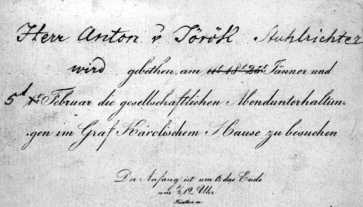 Herr Anton v Török Stuhlrichter
wird gebethen, am Jänner und
5t Februar die gesellschaftlichen Abendunterhaltun-
gen im Graf Károlischem Hause zu besuchen
Der Anfang ist um 6 das Ende
um 1/2 12 Uhr